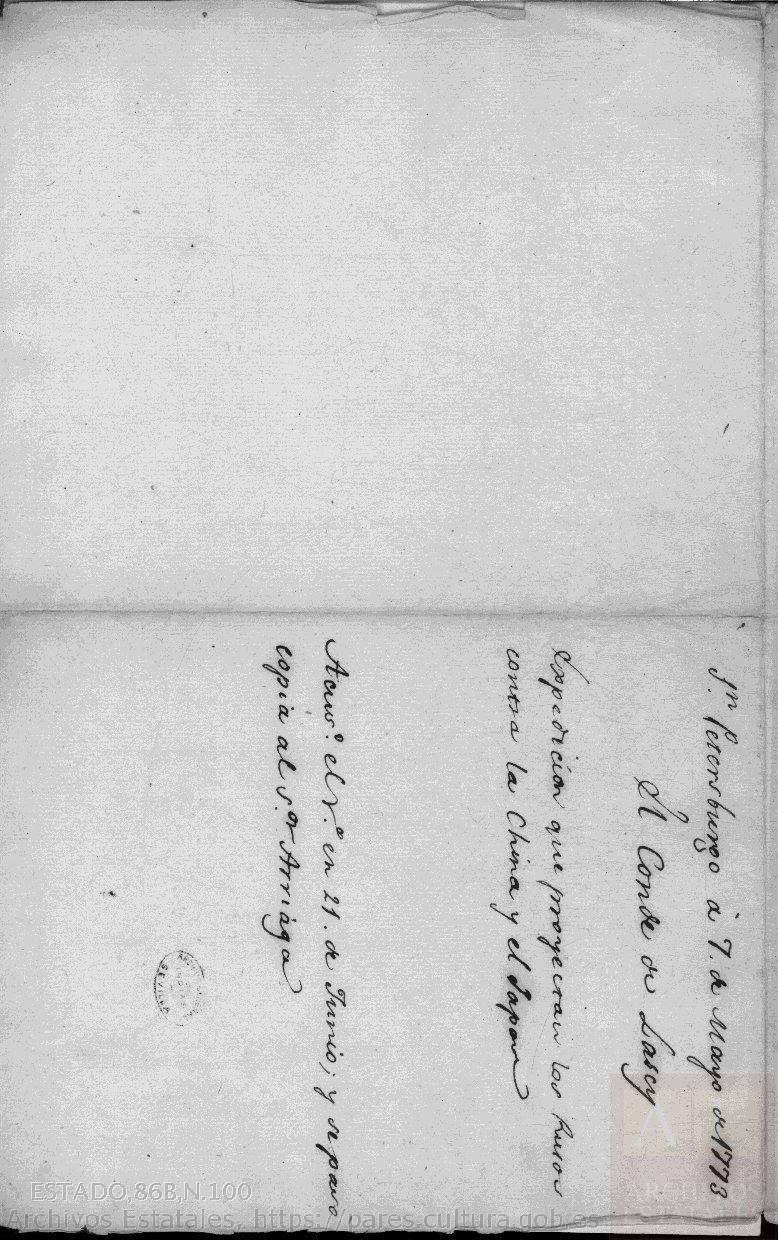 Sn. Petersburgo à 7. de Mayo de 1773
El Conde de Lascy
Expedicion que proyectan los Rusos
contra la China y el Japon
Acusº. el Rº. en 21. de Junio; y se paso
copia al S.or Arriaga
SEVILLA
ESTADO,86B,N.100
Archivos Estatales, https://pares.cultura.gob.es
ARCHIVOS
ESTATALES